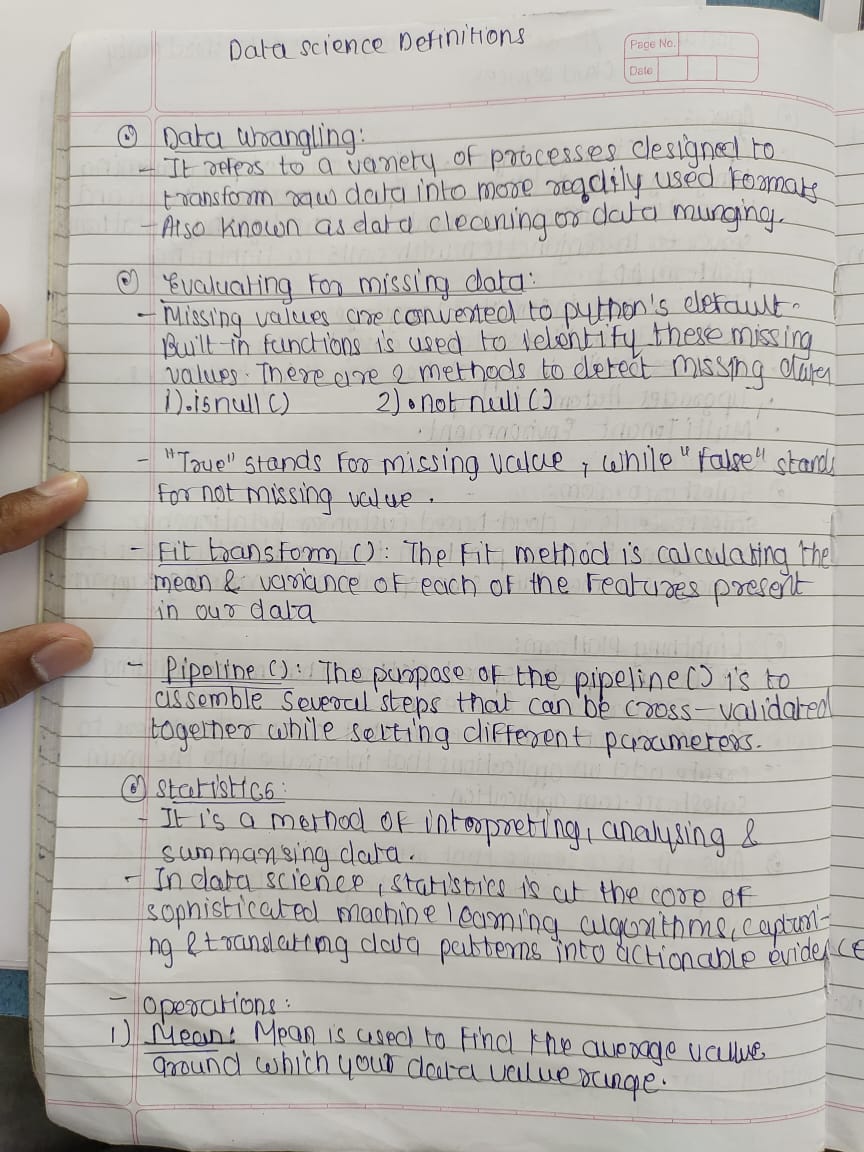 Data science Definitions
Page No.
Date
Data Wrangling:
- It refers to a variety of processes designed to
transform raw data into more readily used formats
- Also known as data cleaning or data munging.
Evaluating for missing data:
- Missing values are converted to python's default.
Built-in functions is used to identify these missing
values. There are 2 methods to detect missing data
1).isnull() 2).notnull()
- "True" stands for missing value, while "false" stands
for not missing value.
- Fit transform (): The Fit method is calculating the
mean & variance of each of the features present
in our data
- Pipeline (): The purpose of the pipeline() is to
assemble several steps that can be cross-validated
together while setting different parameters.
Statistics:
- It is a method of interpreting, analysing &
summarising data.
- In data science, statistics is at the core of
sophisticated machine learning algorithms, capturi-
ng & translating data patterns into actionable evidence
- Operations:
1) Mean: Mean is used to find the average value
around which your data value range.